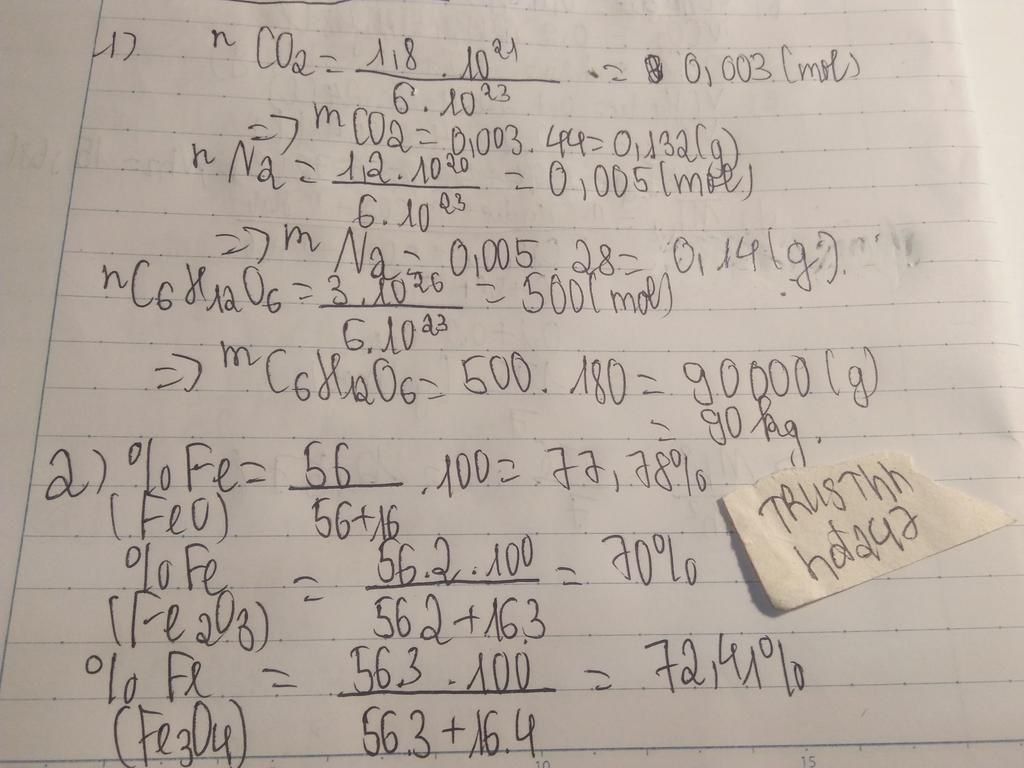 1) nCO2 = 1,8 . 10^21 / 6 . 10^23 = 0,003 (mol)
=> mCO2 = 0,003 . 44 = 0,132 (g)
nN2 = 1,2 . 10^20 / 6 . 10^23 = 0,005 (mol)
=> mN2 = 0,005 . 28 = 0,14 (g).
nC6H12O6 = 3 . 10^26 / 6 . 10^23 = 500 (mol)
=> mC6H12O6 = 500 . 180 = 90000 (g)
= 90 kg.
2) %Fe (FeO) = 56 / 56+16 . 100 = 77,78%
%Fe (Fe2O3) = 56.2 . 100 / 56.2 + 16.3 = 70%
%Fe (Fe3O4) = 56.3 . 100 / 56.3 + 16.4 = 72,41%
10
15